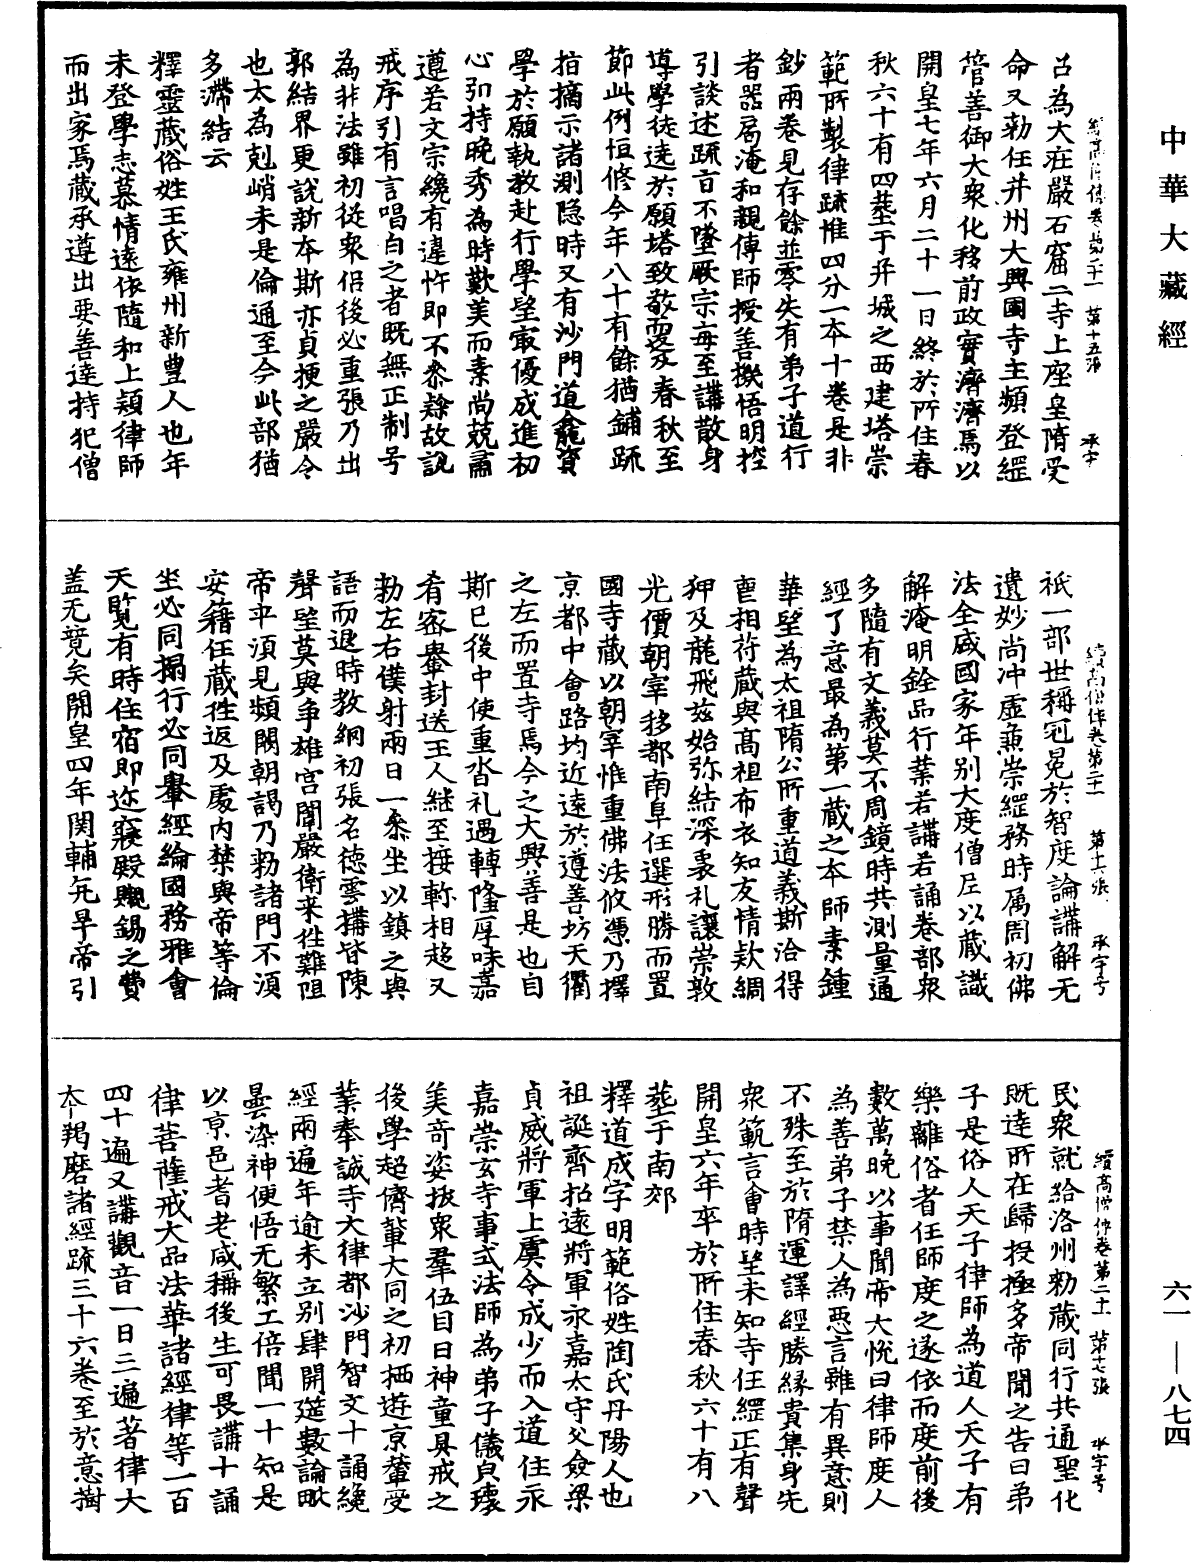 中華大藏經
續高僧傳卷第二十一　第十五張　承字
召為大莊嚴石窟二寺上座皇隋受
命又勅任并州大興國寺主頻登綱
管善御大衆化移前政實濟濟焉以
開皇七年六月二十一日終於所住春
秋六十有四葬于并城之西建塔崇
範所製律疏惟四分一本十卷是非
鈔兩卷見存餘並零失有弟子道行
者器局淹和親傳師授善機悟明控
引談述疏旨不墜厥宗每至講散身
導學徒遶於願塔致敬而返春秋至
節此例恒修今年八十有餘猶鋪疏
指摘示諸測隐時又有沙門道龕資
學於願執教赴行學望㝡優成進初
心弘持晚秀為時歎美而素尚兢肅
遵若文宗纔有違忤即不叅隸故說
戒序引有言唱白之者既無正制号
為非法雖初從衆侣後必重張乃出
郭結界更說新本斯亦貞梗之嚴令
也太為剋峭未是倫通至今此部猶
多滯結云
釋靈藏俗姓王氏雍州新豐人也年
未登學志慕情遠依隨和上頴律師
而出家焉藏承遵出要善達持犯僧
續高僧傳卷第二十一　第十六張　承字号
祇一部世稱冠冕於智度論講解无
遺妙尚冲虛兼崇綱務時属周初佛
法全盛國家年别大度僧尼以藏識
解淹明銓品行業若講若誦卷部衆
多隨有文義莫不周鏡時共測量通
經了意最為第一藏之本師素鍾
華望為太祖隋公所重道義斯洽得
喪相符藏與高祖布衣知友情欵綢
狎及龍飛兹始弥結深衷礼讓崇敦
光價朝宰移都南阜任選形勝而置
國寺藏以朝宰惟重佛法攸憑乃擇
京都中會路均近遠於遵善坊天衢
之左而置寺焉今之大興善是也自
斯已後中使重沓礼遇轉隆厚味嘉
肴密轝封送王人継至接軫相趍又
勅左右僕射兩日一叅坐以鎮之與
語而退時教網初張名徳雲搆皆陳
聲望莫與争雄宫闈嚴衛来往難阻
帝卒須見頻闕朝謁乃勅諸門不須
安籍任藏往返及處内禁與帝等倫
坐必同榻行必同轝經綸國務雅會
天覽有時住宿即迩寢殿嚫錫之費
盖无竟矣開皇四年関輔亢旱帝引
續高僧傳卷第二十一　第十七張　承字号
民衆就給洛州勅藏同行共通聖化
既達所在歸投極多帝聞之告曰弟
子是俗人天子律師為道人天子有
樂離俗者任師度之遂依而度前後
數萬晚以事聞帝大悅曰律師度人
為善弟子禁人為惡言雖有異意則
不殊至於隋運譯經勝緣貴集身先
衆範言會時望未知寺任綱正有聲
開皇六年卒於所住春秋六十有八
葬于南郊
釋道成字明範俗姓陶氏丹陽人也
祖誕齊招遠將軍永嘉太守父僉梁
貞威將軍上虞令成少而入道住永
嘉崇玄寺事式法師為弟子儀㒵瓌
美奇姿拔衆羣伍目曰神童具戒之
後學超儕輩大同之初栖遊京輦受
業奉誠寺大律都沙門智文十誦纔
經兩遍年逾未立别肆開筵數論毗
曇染神便悟无繁工倍聞一十知是
以京邑耆老咸稱後生可畏講十誦
律菩薩戒大品法華諸經律等一百
四十遍又講觀音一日三遍著律大
本羯磨諸經疏三十六卷至於意樹
六一－八七四